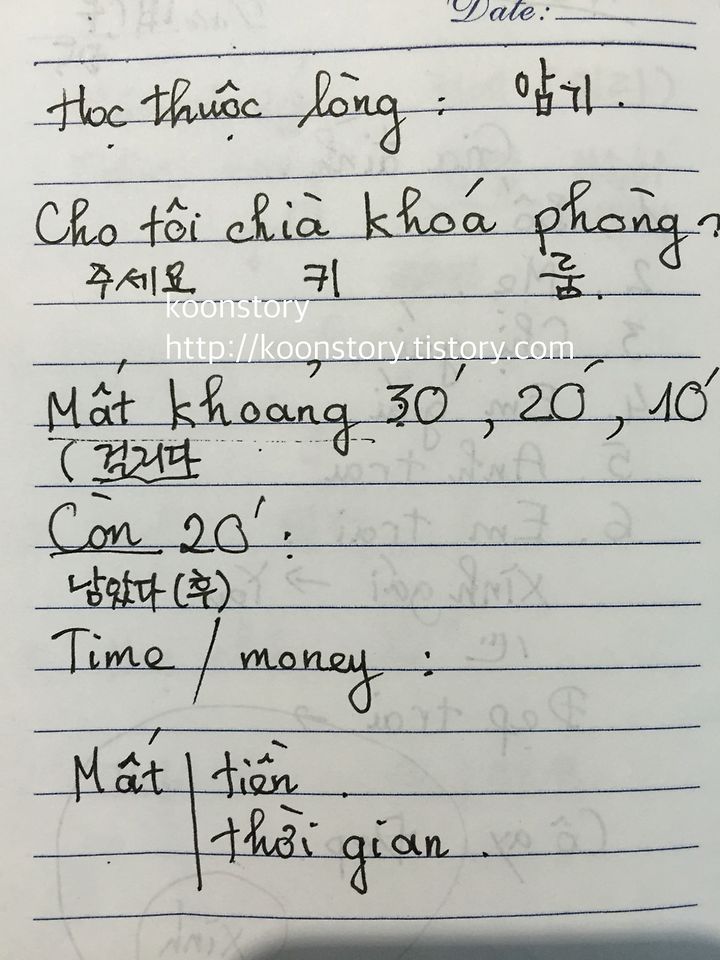 Date:
Học thuộc lòng : 암기.
Cho tôi chià khoá phòng?
주세요 키 룸.
koonstory
http://koonstory.tistory.com
Mất khoảng 30', 20', 10'
(걸리다
Còn 20':
남았다 (후)
Time / money :
Mất | tiền .
thời gian .